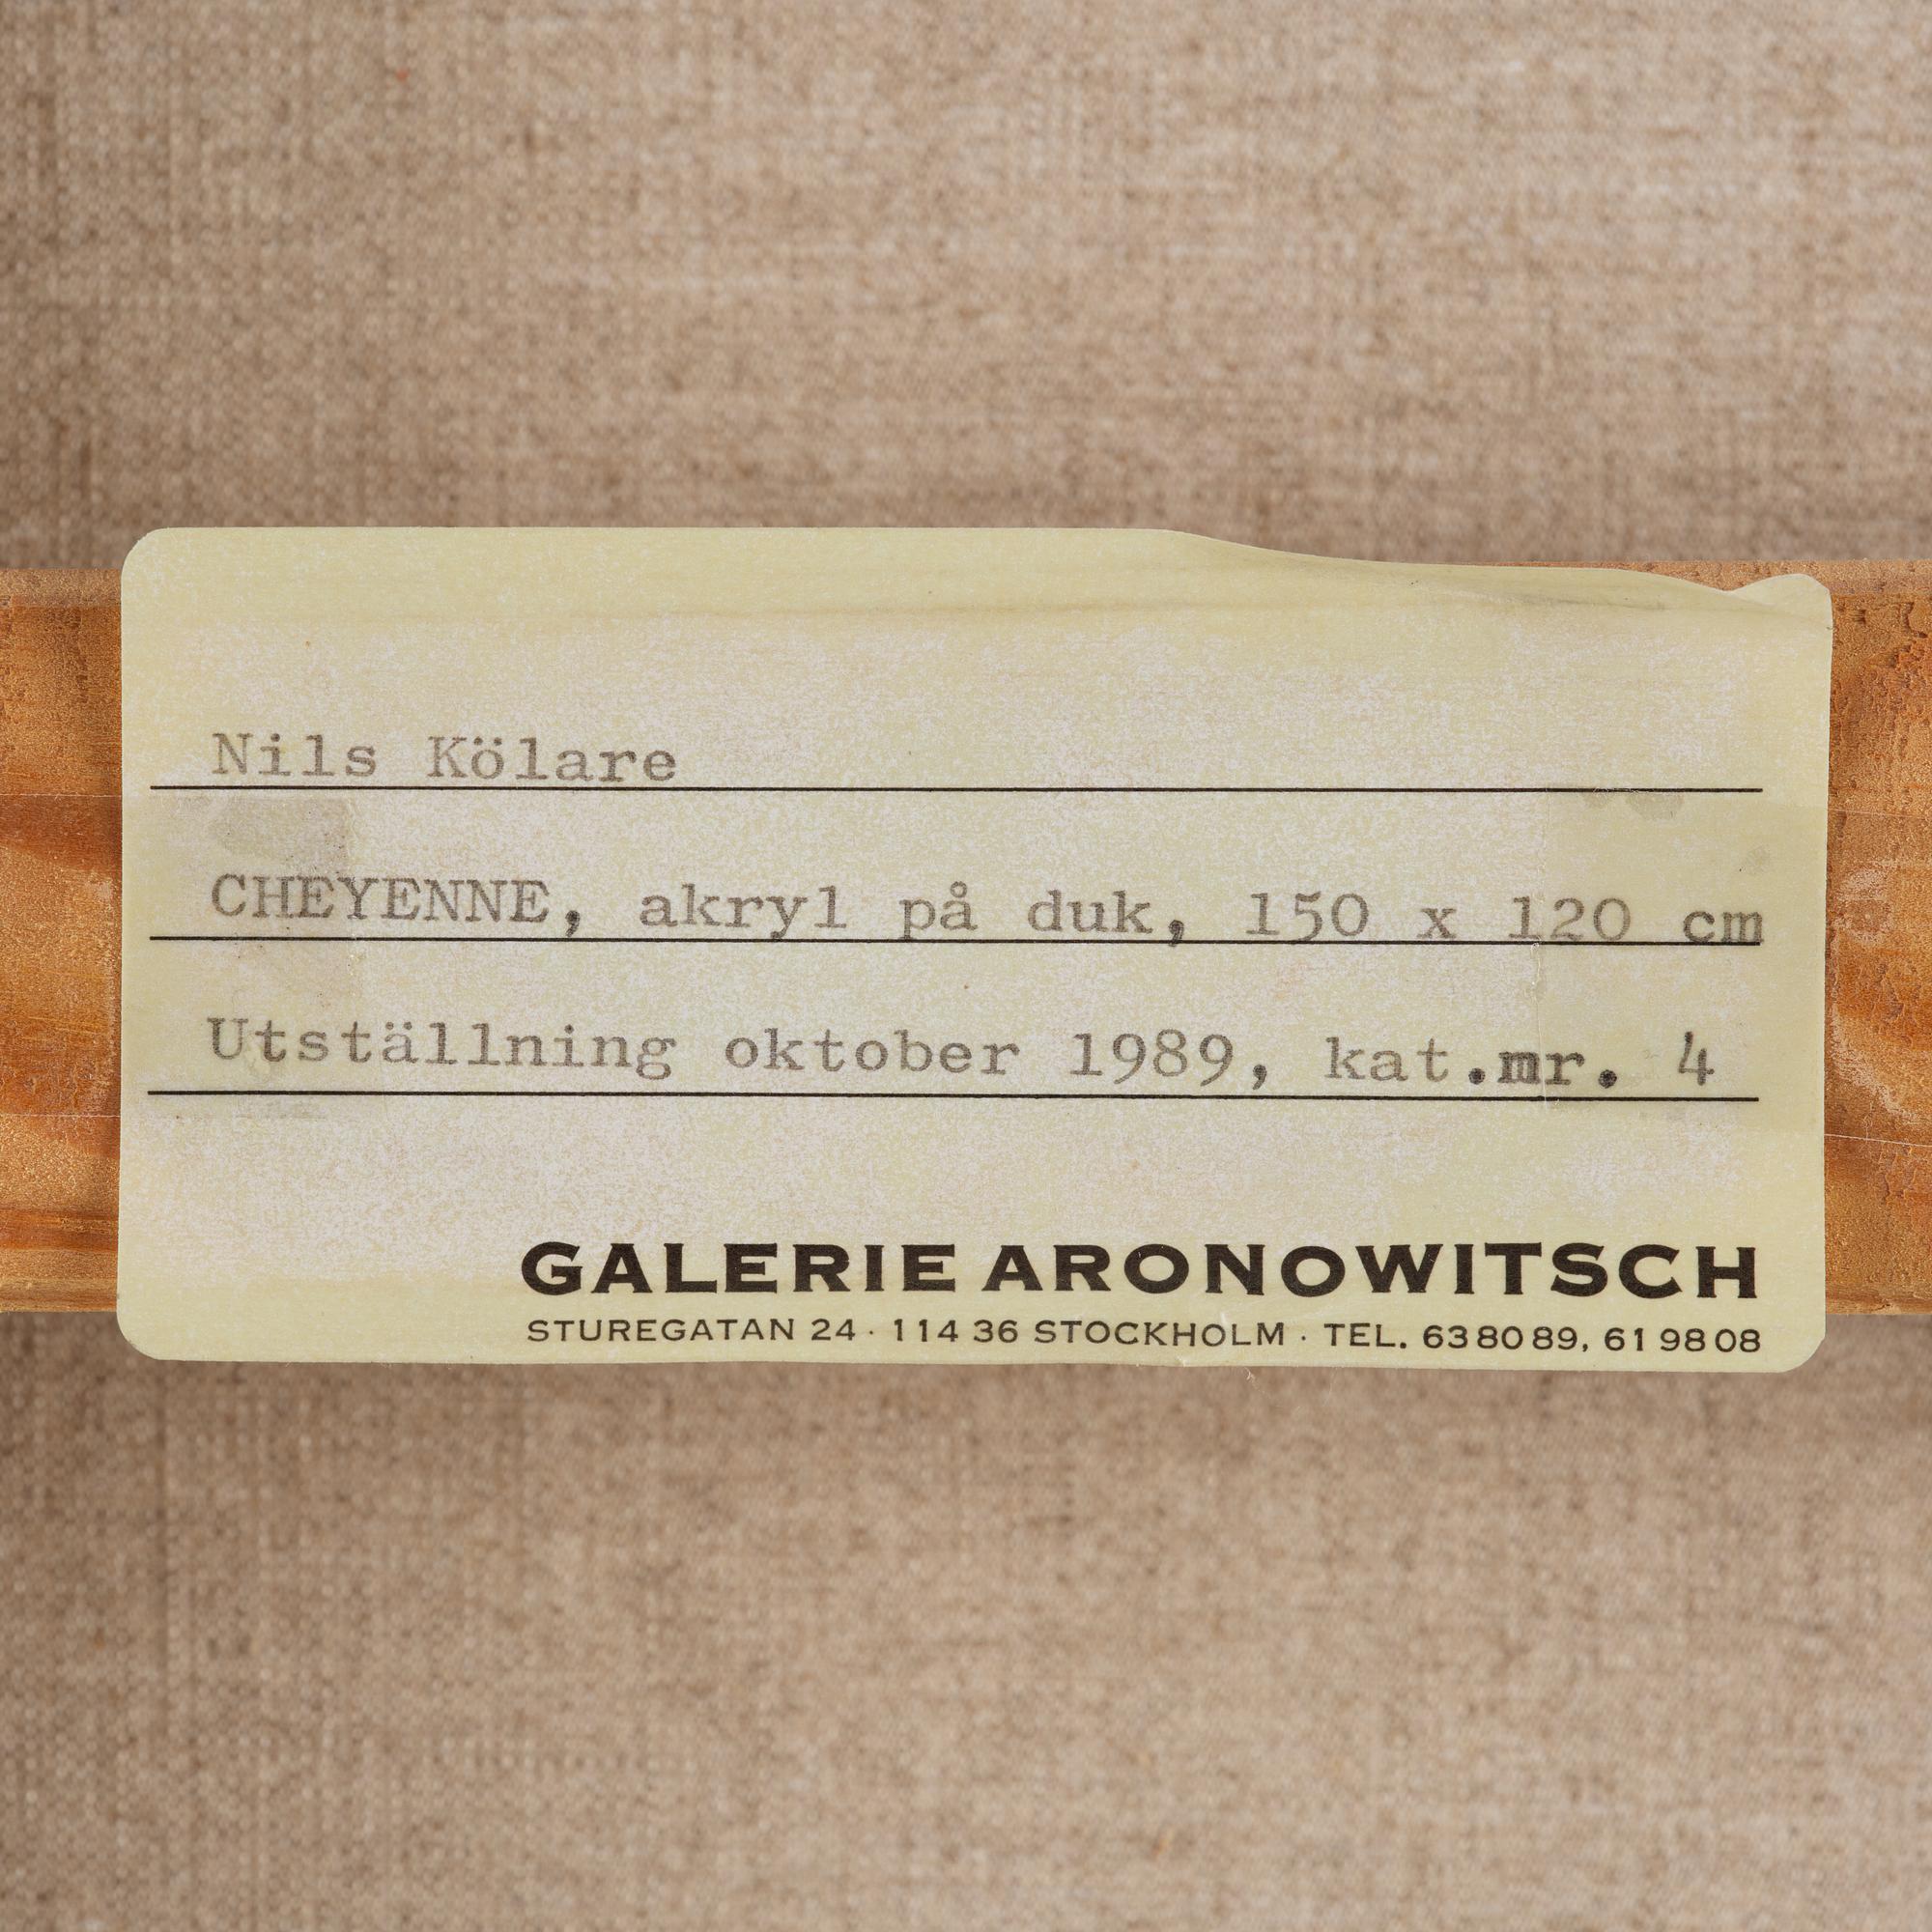 Nils Kölare
CHEYENNE, akryl på duk, 150 x 120 cm
Utställning oktober 1989, kat.nr. 4
GALERIE ARONOWITSCH
STUREGATAN 24 · 114 36 STOCKHOLM · TEL. 63 80 89, 61 98 08